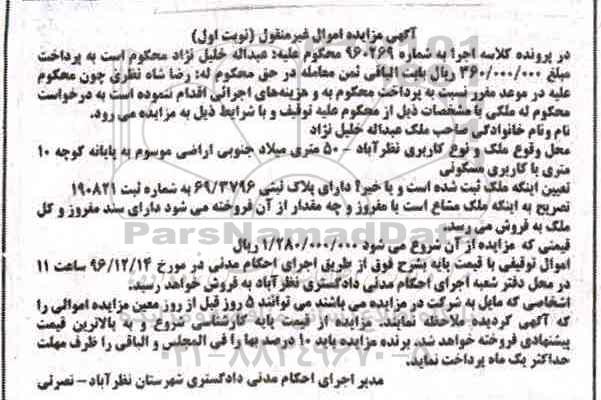 آگهی مزایده اموال غیرمنقول (نوبت اول)
در پرونده کلاسه اجرا به شماره ۹۶۰۲۶۹ محکوم علیه: عبداله خلیل نژاد محکوم است به پرداخت
مبلغ ۳۶۰/۰۰۰/۰۰۰ ریال بابت الباقی ثمن معامله در حق محکوم له: رضا شاه نظری چون محکوم
علیه در موعد مقرر نسبت به پرداخت محکوم به و هزینه‌های اجرائی اقدام ننموده است به درخواست
محکوم له ملکی با مشخصات ذیل از محکوم علیه توقیف و با شرایط ذیل به مزایده می رود.
نام ونام خانوادگی صاحب ملک عبداله خلیل نژاد
محل وقوع ملک و نوع کاربری نظرآباد - ۵۰ متری میلاد جنوبی اراضی موسوم به پایانه کوچه ۱۰
متری با کاربری مسکونی
تعیین اینکه ملک ثبت شده است و یا خیر؟ دارای پلاک ثبتی ۶۹/۳۷۹۶ به شماره ثبت ۱۹۰۸۲۱
تصریح به اینکه ملک مشاع است یا مفروز و چه مقدار از آن فروخته می شود دارای سند مفروز و کل
ملک به فروش می رسد.
قیمتی که مزایده از آن شروع می شود ۱/۲۸۰/۰۰۰/۰۰۰ ریال
اموال توقیفی با قیمت پایه بشرح فوق از طریق اجرای احکام مدنی در مورخ ۹۶/۱۲/۱۴ ساعت ۱۱
در محل دفتر شعبه اجرای احکام مدنی دادگستری نظرآباد به فروش خواهد رسید.
اشخاصی که مایل به شرکت در مزایده می باشند می توانند ۵ روز قبل از روز معین مزایده اموالی را
که آگهی گردیده ملاحظه نمایند. مزایده از قیمت پایه کارشناسی شروع و به بالاترین قیمت
پیشنهادی فروخته خواهد شد. برنده مزایده باید ۱۰ درصد بها را فی المجلس و الباقی را ظرف مهلت
حداکثر یک ماه پرداخت نماید.
مدیر اجرای احکام مدنی دادگستری شهرستان نظرآباد - نصرتی
ParsNamadData